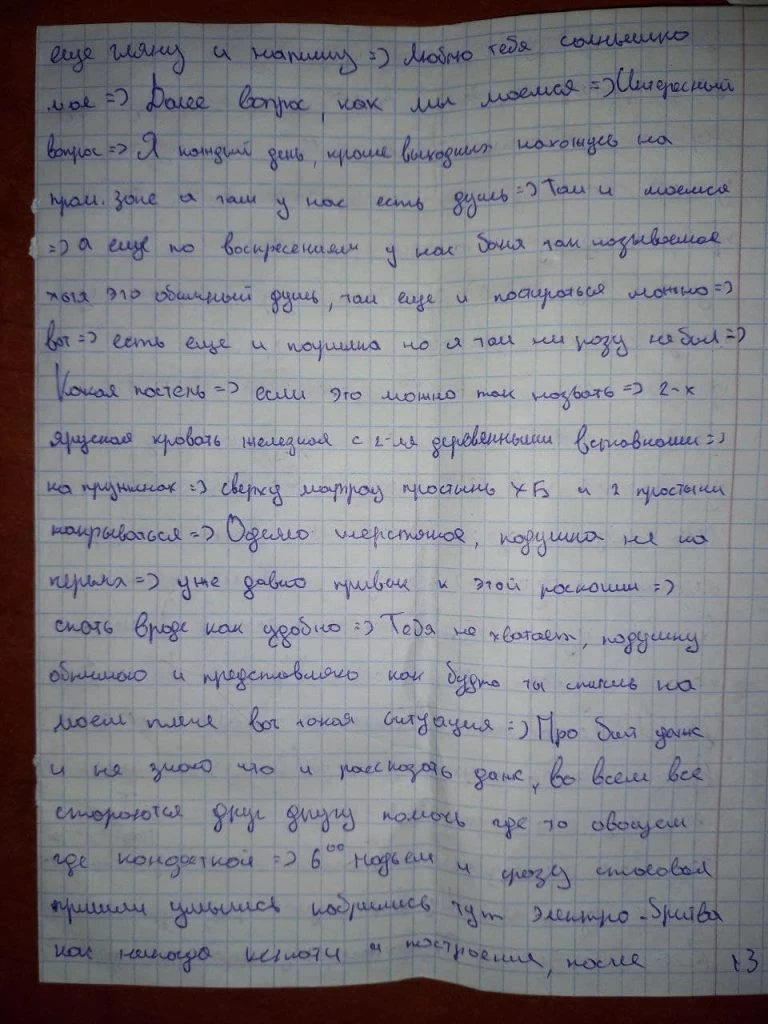 еще гляну и напишу =) Люблю тебя солнышко
мое =) Далее вопрос, как мы моемся =) Интересный
вопрос =) Я каждый день, кроме выходных нахожусь на
пром. зоне а там у нас есть душь =) Там и моемся
=) а еще по воскресениям у нас баня так называемая
хотя это обычный душь, там еще и постираться можно =)
вот =) есть еще и парилка но я там ни разу не был =)
Какая постель =) если это можно так назвать =) 2-х
ярусная кровать железная с 2-мя деревянными вставками =)
на пружинах =) сверху матрац простынь ХБ и 2 простыни
накрываться =) Одеяло шерстяное, подушка не на
перьях =) уже давно привык к этой роскоши =)
спать вроде как удобно =) Тебя не хватает, подушку
обнимаю и представляю как будто ты спишь на
моем плече вот такая ситуация =) Про быт даже
и не знаю что и рассказать даже, во всем все
стараются друг другу помочь где то овощем
где конфеткой =) 6⁰⁰ подъем и сразу столовая
пришли умылись побрились тут электро-бритва
как никогда кстати и построение, после 13